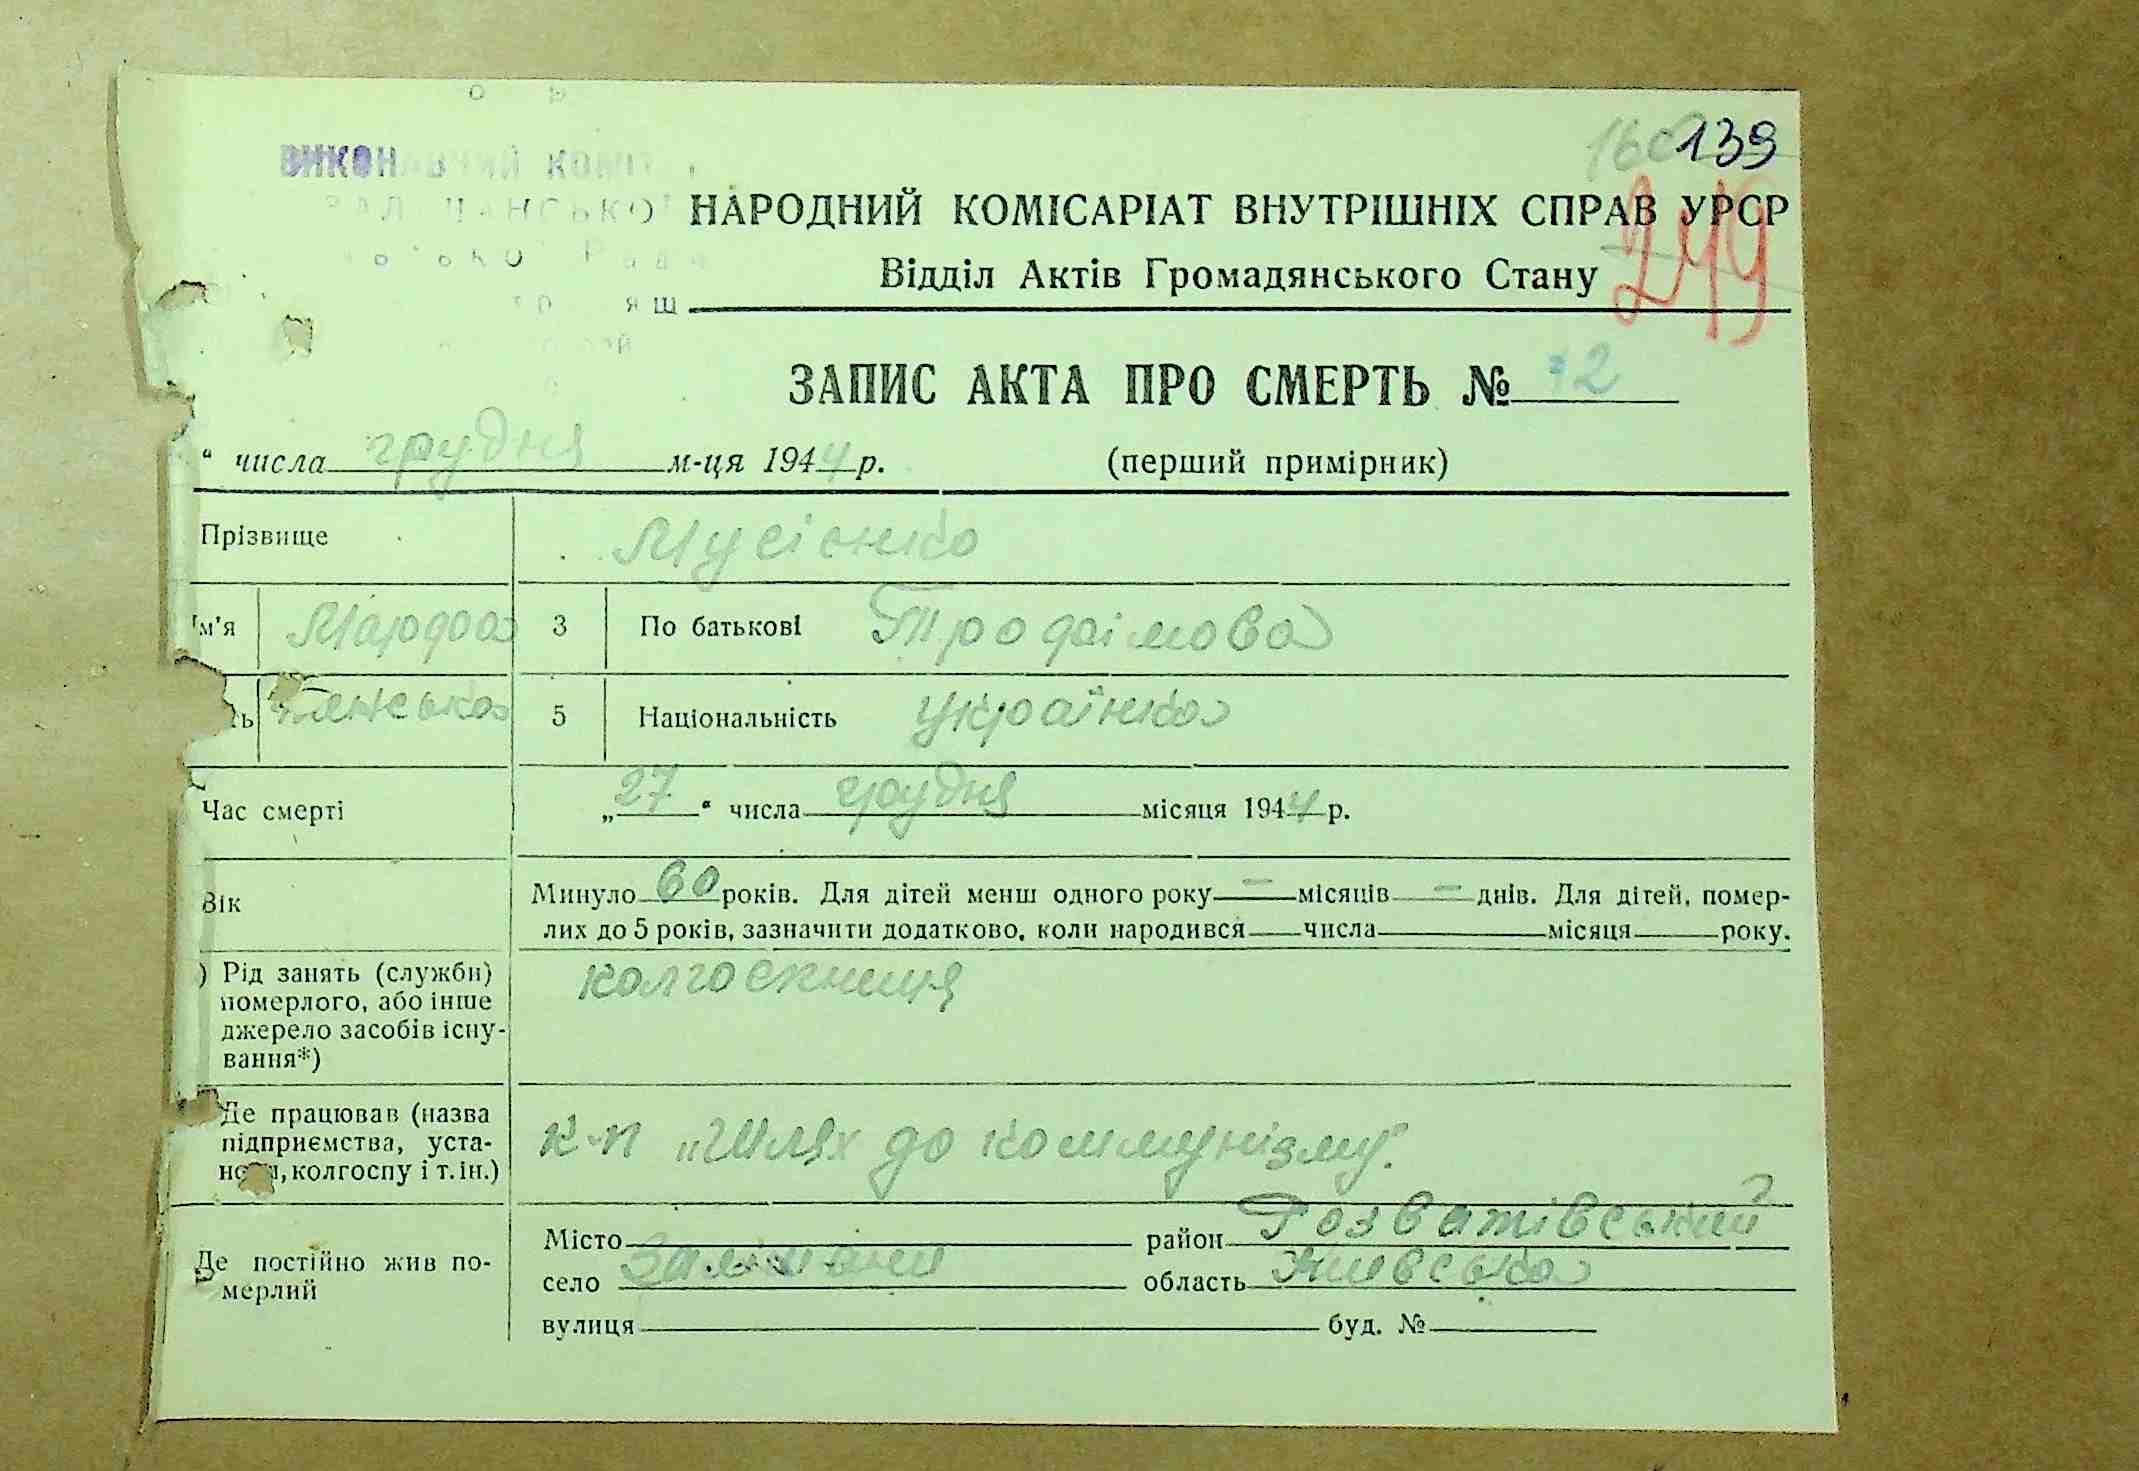 ВИКОН
139
НАРОДНИЙ КОМІСАРІАТ ВНУТРІШНІХ СПРАВ УРСР
249
Відділ Актів Громадянського Стану
ЗАПИС АКТА ПРО СМЕРТЬ № 12
“ числа грудня м-ця 1944 р. (перший примірник)
Прізвище Мусієнко
Ім'я Марфа 3 По батькові Трофімова
ть Женська 5 Національність Українка
Час смерті „27“ числа грудня місяця 1944 р.
Вік Минуло 60 років. Для дітей менш одного року — місяців — днів. Для дітей, помер-
лих до 5 років, зазначити додатково, коли народився числа місяця року.
) Рід занять (служби) колгоспниця
померлого, або інше
джерело засобів існу-
вання*)
Де працював (назва
підприємства, уста- к-п „Шлях до коммунізму".
нови, колгоспу і т. ін.)
Місто район Розважівський
Де постійно жив по-
мерлий
село область Київська
вулиця буд. №